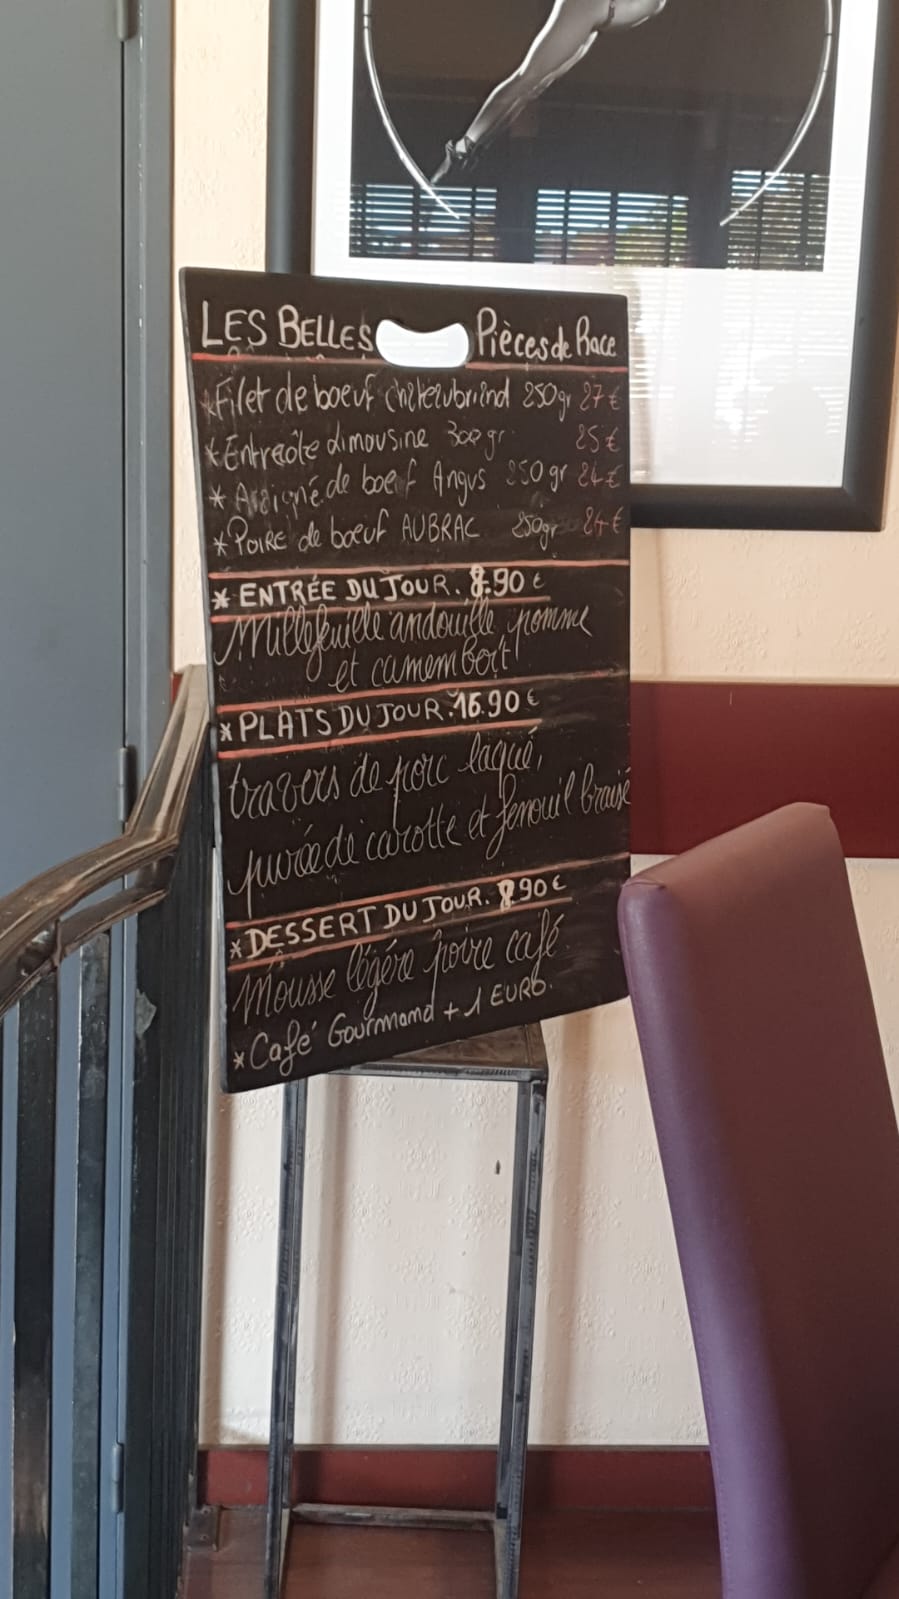 LES BELLES Pièces de Race
*Filet de boeuf chateaubriand 250gr 27€
*Entrecôte Limousine 300gr 25€
*Araigné de boeuf Angus 250gr 24€
*POIRE de bœuf AUBRAC 250gr 24€
*ENTRÉE DU JOUR. 8.90€
Millefeuille andouille, pomme
et camembert!
*PLATS DU JOUR. 16.90€
travers de porc laqué,
purée de carotte et fenouil braisé
*DESSERT DU JOUR. 8.90€
Mousse légère poire café.
*Café Gourmand + 1 EURO.